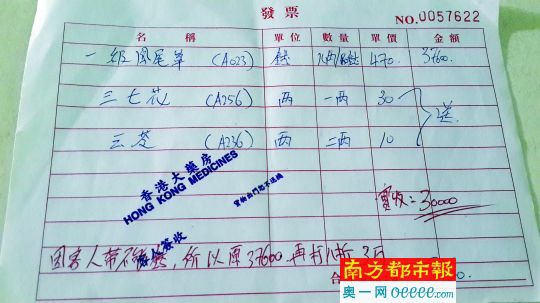 發票
NO.0057622
名稱 單位 數量 單價 金額
一級鳳尾草 (A023) 錢 470. 37600.
三七花 (A256) 兩 一兩 30 送
云苓 (A236) 兩 二兩 10
香港大藥房
HONG KONG MEDICINES
貨物出門恕不退換
實收=30000
因客人帶不够錢,所以原37600再打八折3万
簽收
合
南方都市報
奥一网oeeee.com